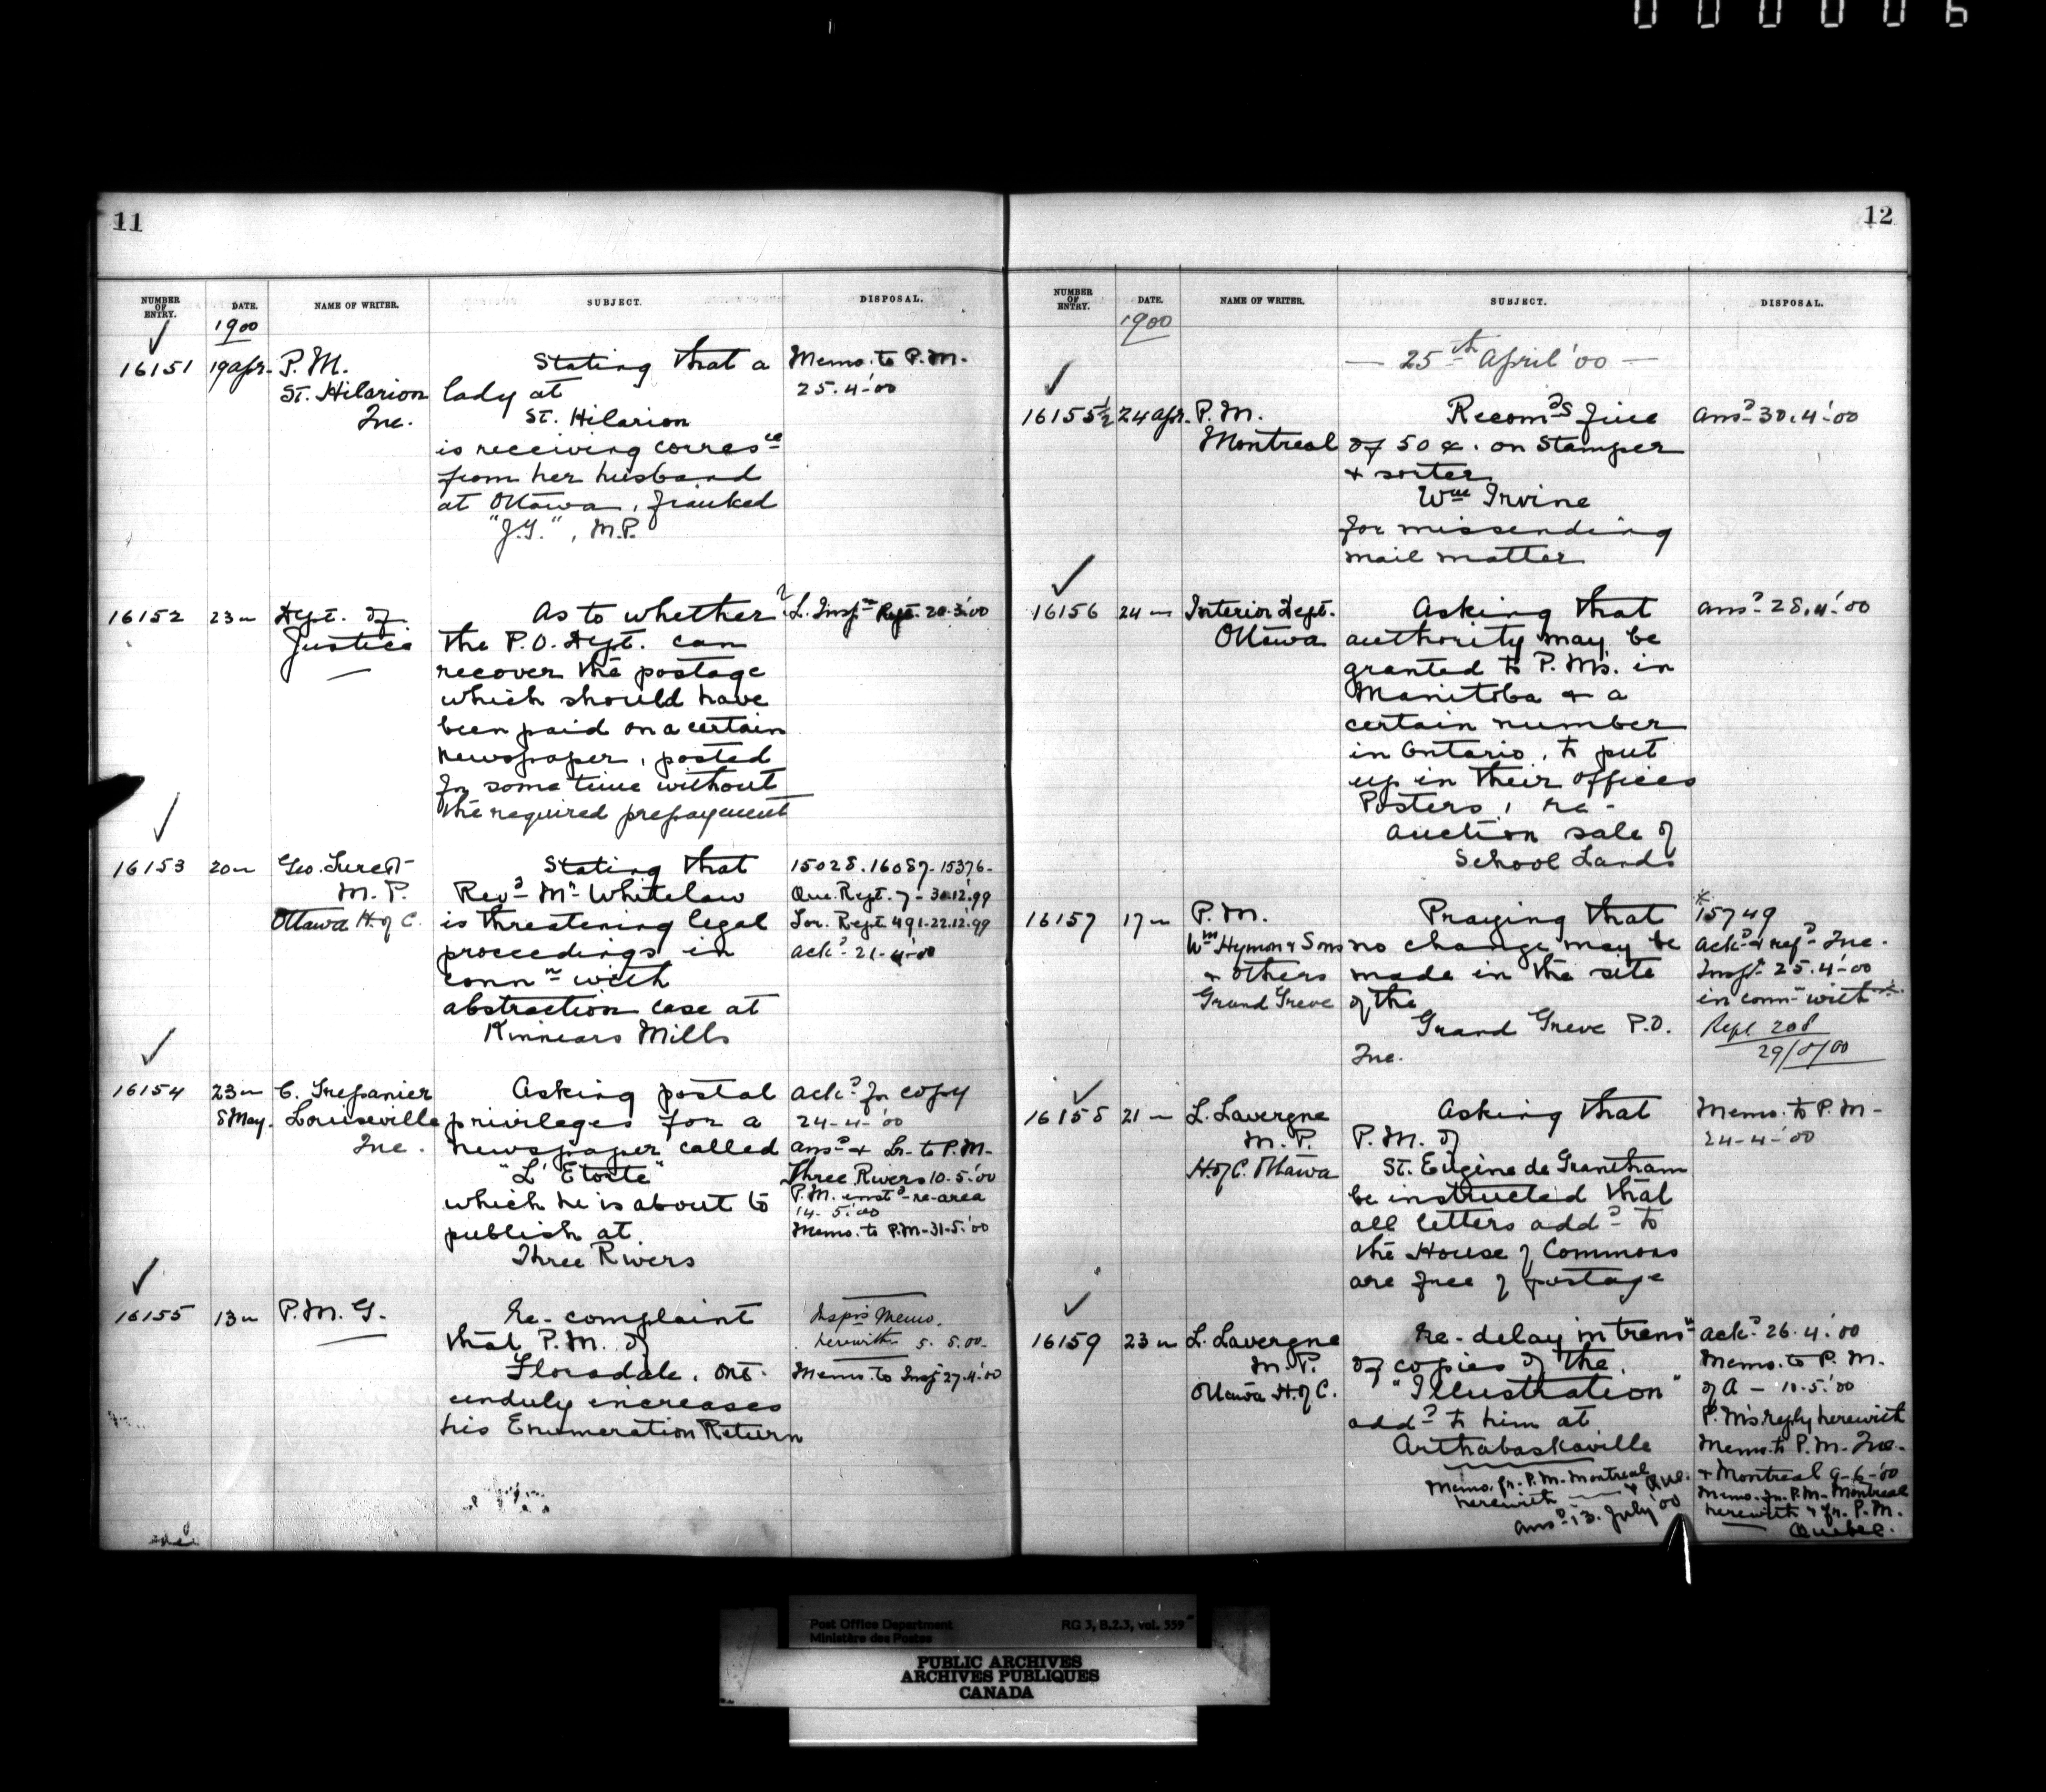 000006
11
NUMBER OF ENTRY. DATE. NAME OF WRITER. SUBJECT. DISPOSAL.
1900
16151 19 Apr. P.M. Stating that a Memo. to P.M.
St. Hilarion lady at 25.4.'00
Que. St. Hilarion
is receiving corresce
from her husband
at Ottawa, franked
"J.G.", M.P.
16152 23 " Dept. of As to whether L. Inspr Rept. 20.3.'00
Justice the P.O. Dept. can
recover the postage
which should have
been paid on a certain
newspaper, posted
for some time without
the required prepayment
16153 20 " Geo. Turcot Stating that 15028.16087-15376-
M.P. Revd Mr Whitelaw Que. Rept. 7-30.12.'99
Ottawa H. of C. is threatening legal Tor. Rept 491-22.12.'99
proceedings in ackd 21-4-'00
connn with
abstraction case at
Kinnears Mills
16154 23 " C. Trepanier Asking postal ackd for copy
8 May. Louiseville privileges for a 24-4-'00
Que. newspaper called ansd & Lr. to P.M.
"L'Etoile" Three Rivers 10.5.'00
which he is about to P.M. instd re-area
publish at 14.5.'00
Three Rivers Memo. to P.M-31-5.'00
16155 13 " P.M.G. Re-complaint Inspr's Memo.
that P.M. of herewith 5.5.00.
Floradale, Ont. Memo. to Inspr 27.4.'00
unduly increases
his Enumeration Return
12
NUMBER OF ENTRY. DATE. NAME OF WRITER. SUBJECT. DISPOSAL.
1900
— 25th April '00 —
16155½ 24 Apr. P.M. Recomds fine ansd 30.4.'00
Montreal of 50 ¢. on Stamper
& sorter
Wm Irvine
for missending
mail matter
16156 24 " Interior Dept. Asking that ansd 28.4.'00
Ottawa authority may be
granted to P.Ms. in
Manitoba & a
certain number
in Ontario, to put
up in their offices
Posters, re-
auction sale of
School Lands
16157 17 " P.M. Praying that 15749
Wm Hymon & Sons no change may be ackd & refd Que.
& others made in the site Inspr 25.4.'00
Grand Greve of the in conn with
Grand Greve P.O. Rept 208
Que. 29/5/00
16158 21 " L. Lavergne Asking that Memo. to P.M-
M.P. P.M. of 24-4-'00
H. of C. Ottawa St. Eugène de Grantham
be instructed that
all letters addd to
the House of Commons
are free of postage
16159 23 " L. Lavergne Re-delay in transn ackd 26.4.'00
M.P. of copies of the Memo. to P.M.
Ottawa H. of C. "Illustration" of A — 10.5.'00
addd to him at P.M's reply herewith
Arthabaskaville Memo. to P.M. Que.
Memo. fr. P.M. Montreal & Que. & Montreal 9-6-'00
herewith Memo. fr. P.M. Montreal
ansd 13 July '00 herewith & fr. P.M.
Quebec.
Post Office Department RG 3, B.2.3, vol. 559
Ministère des Postes
PUBLIC ARCHIVES
ARCHIVES PUBLIQUES
CANADA